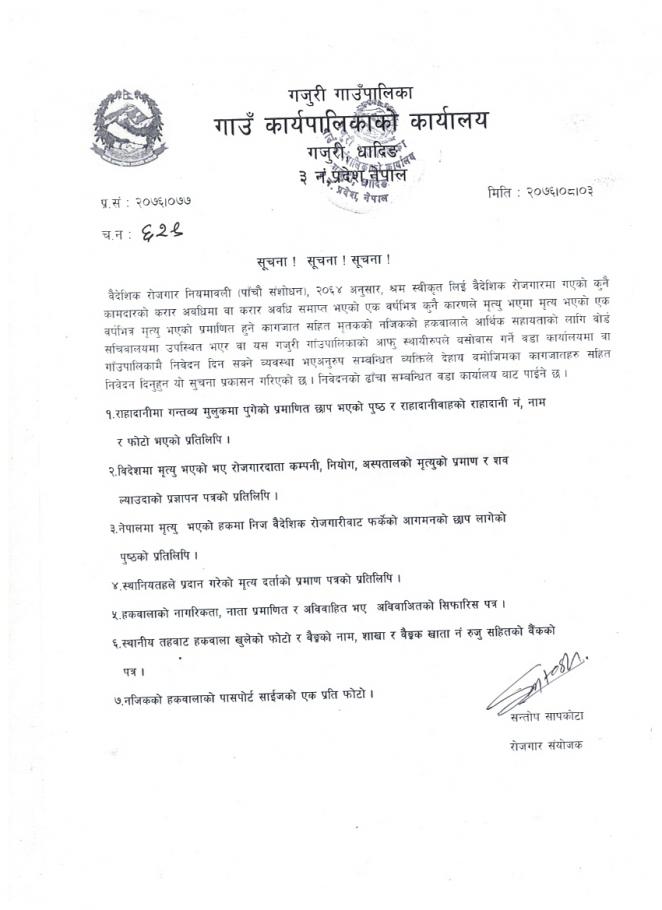 गजुरी गाउँपालिका
गाउँ कार्यपालिकाको कार्यालय
गजुरी, धादिङ
३ नं. प्रदेश, नेपाल
प्र.सं : २०७६।०७७
मिति : २०७६।०८।०३
च.न : ६२९
सूचना ! सूचना ! सूचना !
वैदेशिक रोजगार नियमावली (पाँचौ संशोधन), २०६४ अनुसार, श्रम स्वीकृत लिई वैदेशिक रोजगारमा गएको कुनै
कामदारको करार अवधिमा वा करार अवधि समाप्त भएको एक वर्षभित्र कुनै कारणले मृत्यु भएमा मृत्य भएको एक
वर्षभित्र मृत्यु भएको प्रमाणित हुने कागजात सहित मृतकको नजिकको हकवालाले आर्थिक सहायताको लागि बोर्ड
सचिवालयमा उपस्थित भएर वा यस गजुरी गांउपालिकाको आफु स्थायीरुपले यसोवास गर्ने वडा कार्यालयमा वा
गाँउपालिकामै निवेदन दिन सक्ने व्यवस्था भएअनुरुप सम्बन्धित व्यक्तिले देहाय वमोजिमका कागजातहरु सहित
निवेदन दिनुहुन यो सुचना प्रकासन गरिएको छ । निवेदनको ढाँचा सम्बन्धित वडा कार्यालय वाट पाईने छ ।
१.राहादानीमा गन्तव्य मुलुकमा पुगेको प्रमाणित छाप भएको पुष्ठ र राहादानीवाहको राहादानी नं, नाम
र फोटो भएको प्रतिलिपि ।
२.विदेशमा मृत्यु भएको भए रोजगारदाता कम्पनी, नियोग, अस्पतालको मृत्युको प्रमाण र शव
ल्याउदाको प्रज्ञापन पत्रको प्रतिलिपि ।
३.नेपालमा मृत्यु भएको हकमा निज वैदेशिक रोजगारीवाट फर्केको आगमनको छाप लागेको
पुष्ठको प्रतिलिपि ।
४.स्थानियतहले प्रदान गरेको मृत्य दर्ताको प्रमाण पत्रको प्रतिलिपि ।
५.हकवालाको नागरिकता, नाता प्रमाणित र अविवाहित भए अविवाजितको सिफारिस पत्र ।
६.स्थानीय तहवाट हकवाला खुलेको फोटो र बैङ्कको नाम, शाखा र बैङ्क खाता नं रुजु सहितको बैंकको
पत्र ।
७.नजिकको हकवालाको पासपोर्ट साईजको एक प्रति फोटो ।
सन्तोप सापकोटा
रोजगार संयोजक